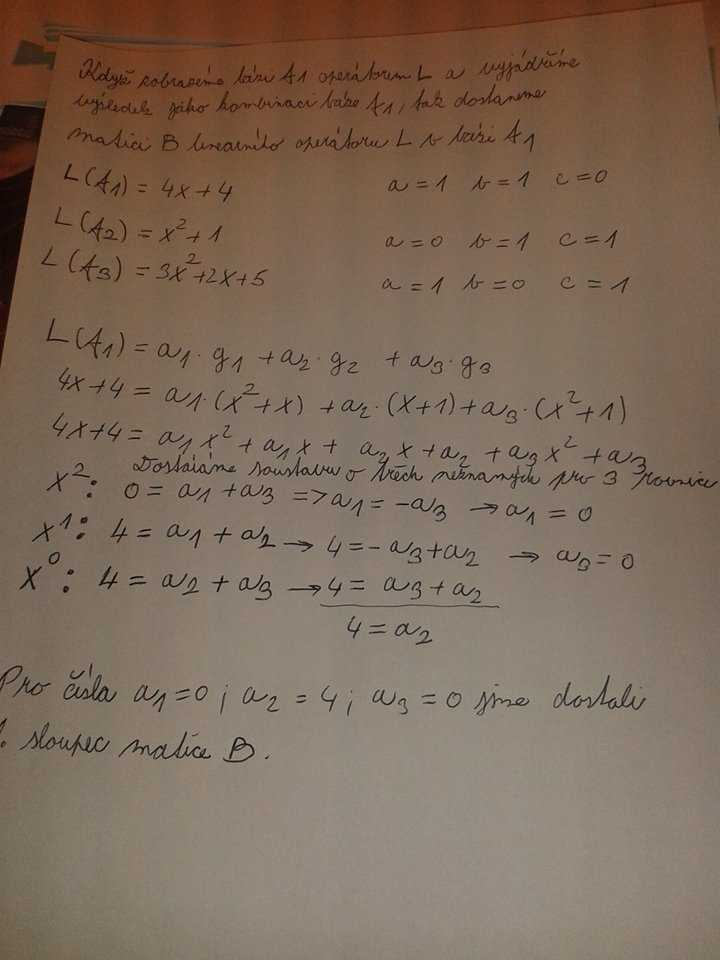 Když zobrazíme bázi A1 operátorem L a vyjádříme
výsledek jako kombinaci báze A1, tak dostaneme
matici B linearního operátoru L v bázi A1
L(A1) = 4x+4 a=1 b=1 c=0
L(A2) = x²+1 a=0 b=1 c=1
L(A3) = 3x²+2x+5 a=1 b=0 c=1
L(A1) = a1·g1 +a2·g2 +a3·g3
4x+4 = a1·(x²+x) +a2·(x+1)+a3·(x²+1)
4x+4 = a1x²+a1x+ a2x+a2 +a3x²+a3
Dostáváme soustavu o třech neznámých pro 3 rovnice
x²: 0=a1+a3 => a1=-a3 → a1=0
x¹: 4=a1+a2 → 4=-a3+a2 → a3=0
x⁰: 4=a2+a3 → 4= a3+a2
4=a2
Pro čísla a1=0; a2=4; a3=0 jsme dostali
1. sloupec matice B.